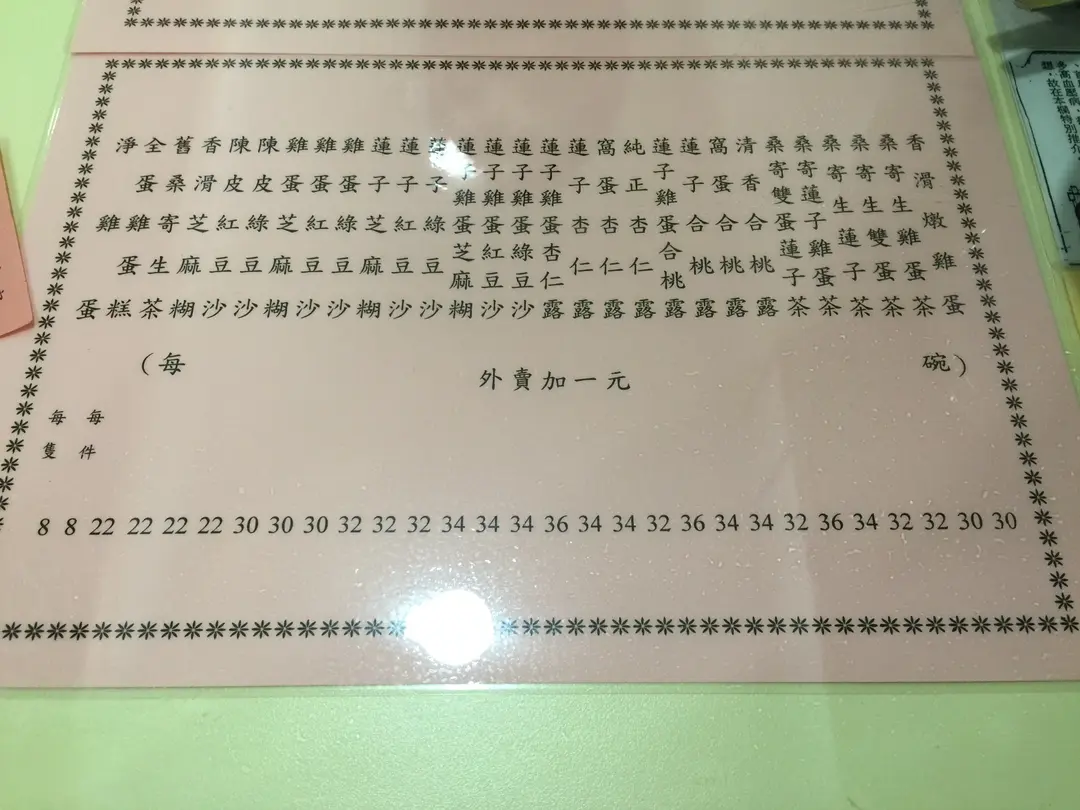 香滑燉雞蛋 30
桑寄生雞蛋茶 30
桑寄生雙蛋茶 32
桑寄生蓮子茶 32
桑寄蓮子雞蛋茶 34
桑寄雙蛋蓮子茶 36
清香合桃露 32
窩蛋合桃露 34
蓮子合桃露 34
蓮子雞蛋合桃露 36
純正杏仁露 32
窩蛋杏仁露 34
蓮子杏仁露 34
蓮子雞蛋杏仁露 36
蓮子雞蛋綠豆沙 34
蓮子雞蛋紅豆沙 34
蓮子雞蛋芝麻糊 34
蓮子綠豆沙 32
蓮子紅豆沙 32
蓮子芝麻糊 32
雞蛋綠豆沙 30
雞蛋紅豆沙 30
雞蛋芝麻糊 30
陳皮綠豆沙 22
陳皮紅豆沙 22
香滑芝麻糊 22
舊桑寄生茶 22
全蛋雞蛋糕 每件 8
淨雞蛋 每隻 8
(每碗)
外賣加一元
高血壓病,
故在本欄特別推介